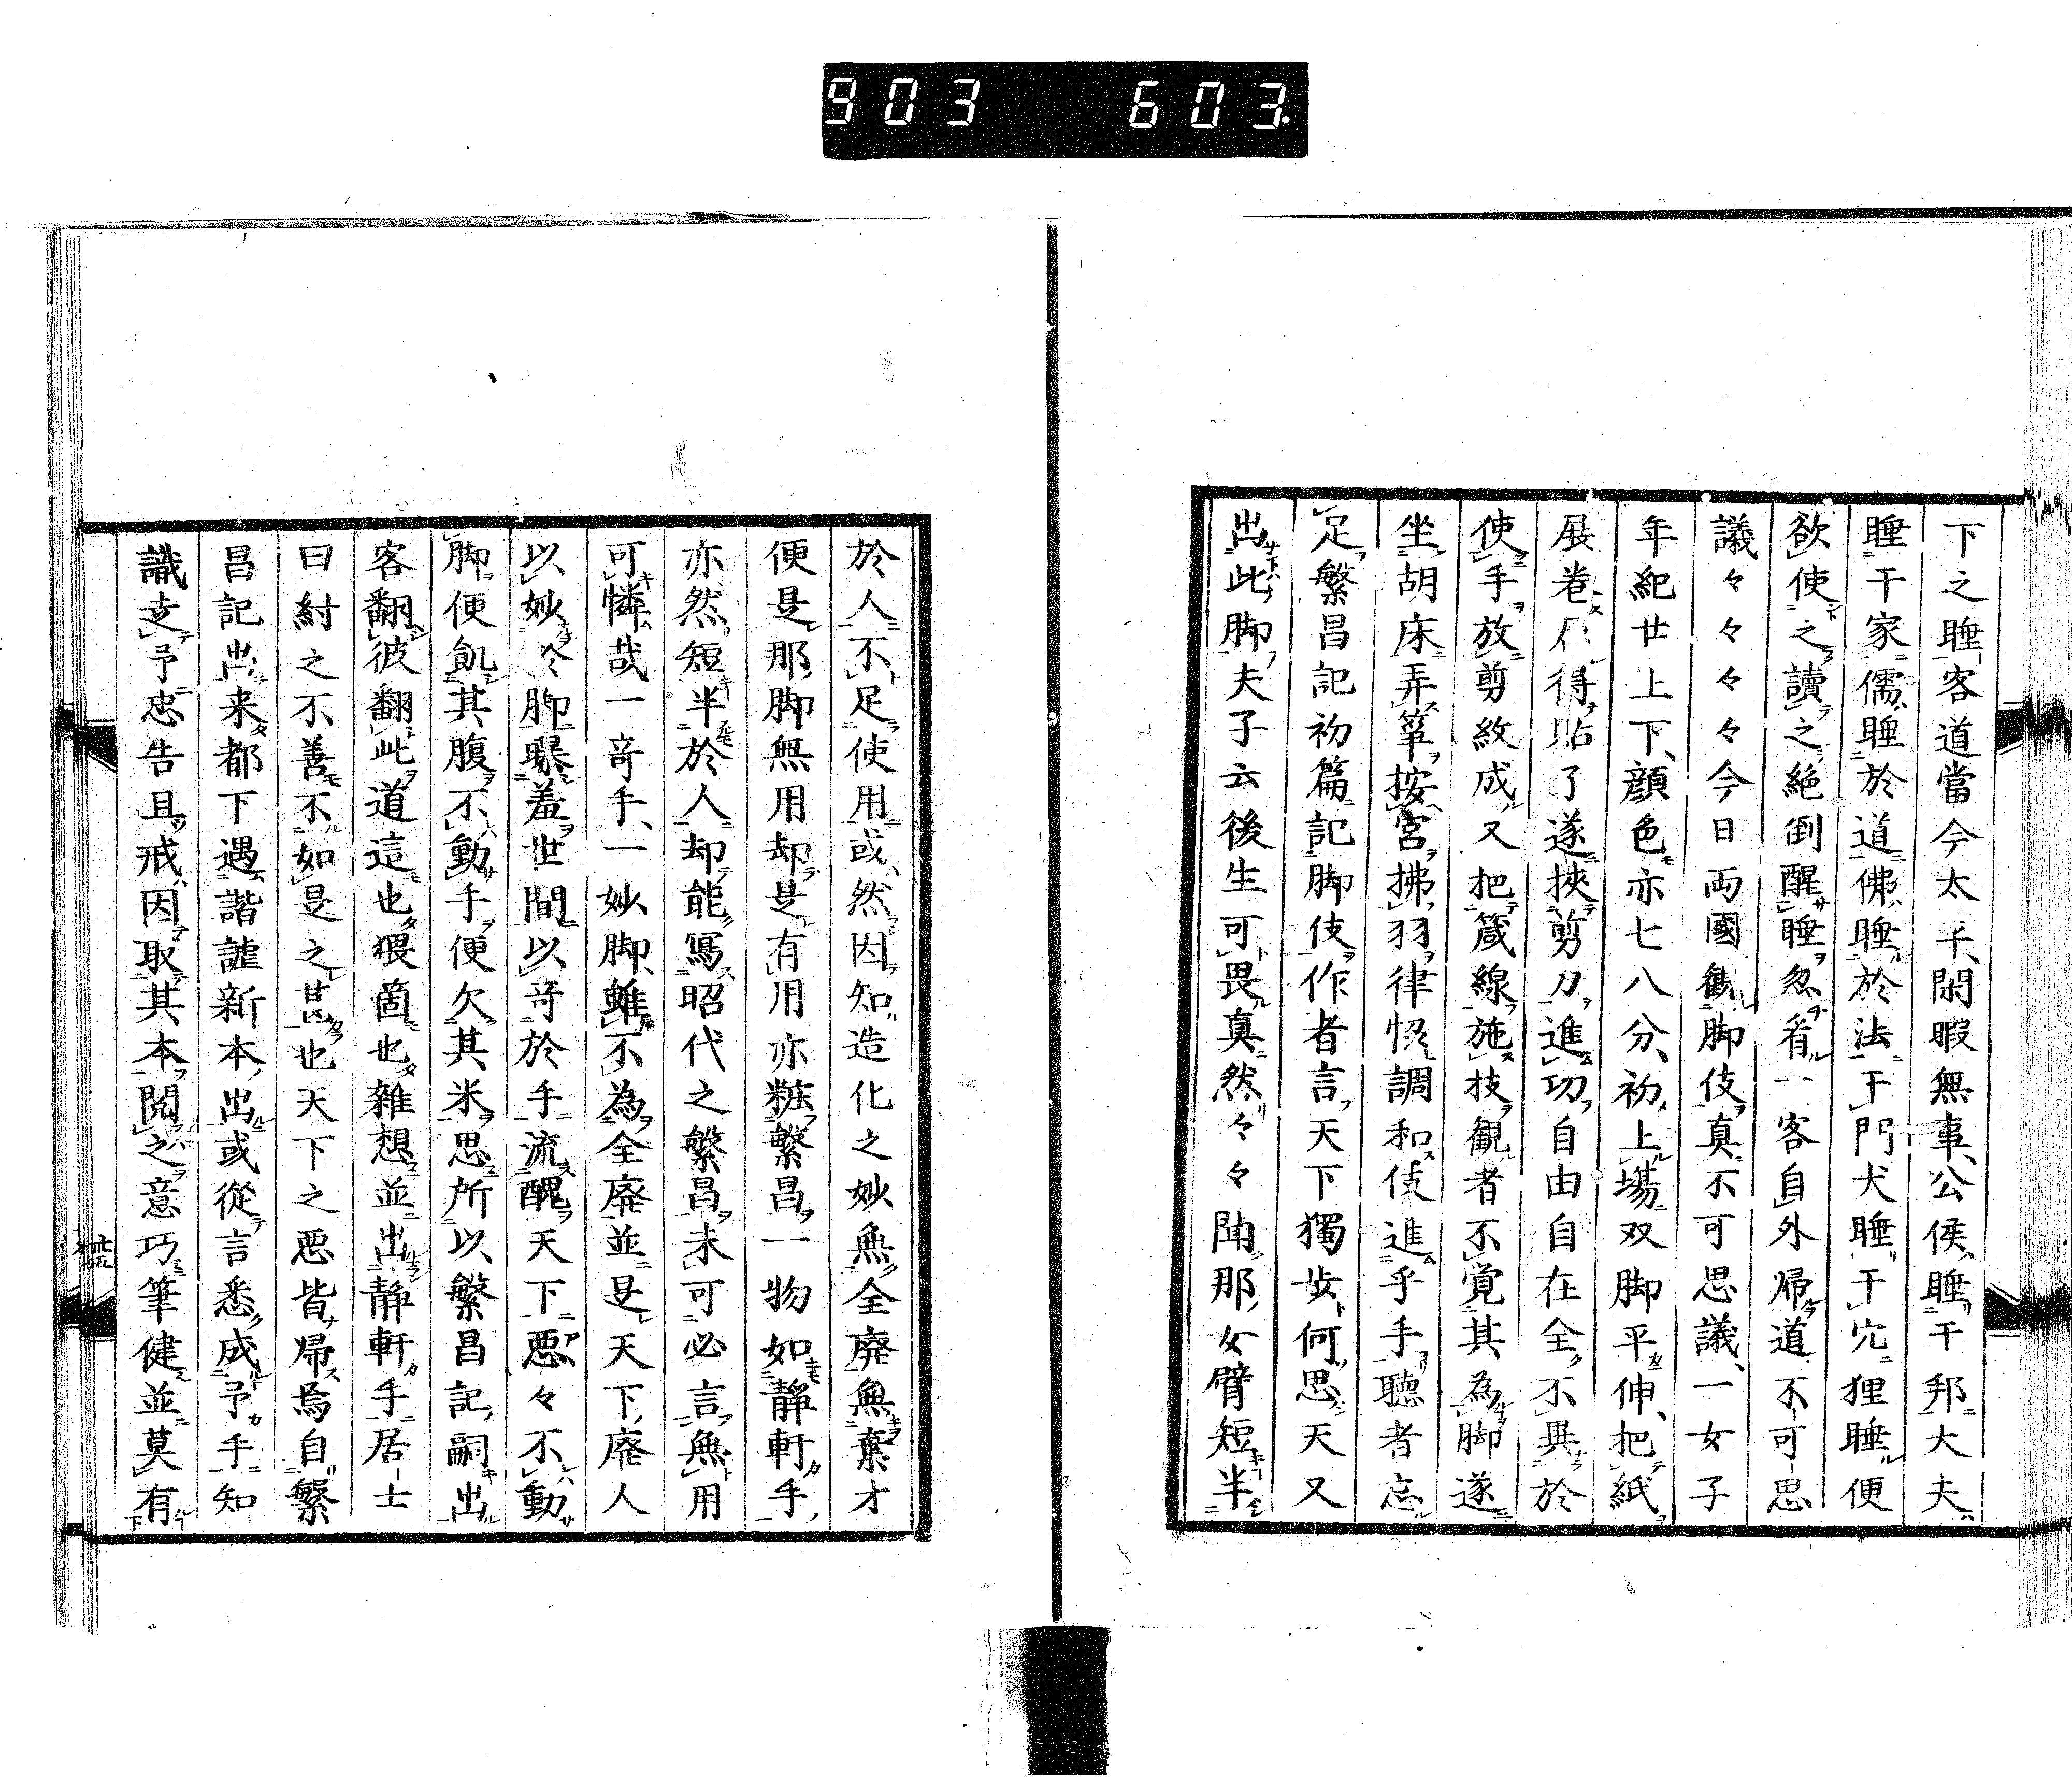 903 603.
下之睡客道當今太平閑暇無事公侯睡干邦大夫
睡干家儒睡於道佛睡於法干門犬睡干穴狸睡便
欲使之讀之絶倒醒睡忽看一客自外帰道不可思
議々々々々今日両國觀脚伎真不可思議一女子
年紀廿上下顔色亦七八分初上場双脚平伸把紙
展巻得貼了遂挾剪刀進功自由自在全不異於
使手放剪紋成又把箴線施技観者不覚其為脚遂
坐胡床弄箏按宮拂羽律恊調和伎進乎手聴者忘
足繁昌記初篇記脚伎作者言天下獨歩何思天又
出此脚夫子云後生可畏真然々々聞那女臂短半
於人不足使用或然因知造化之妙無全廃無棄才
便是那脚無用却是有用亦粧繁昌一物如靜軒手
亦然短半於人却能寫昭代之繁昌未可必言無用
可憐哉一竒手一妙脚雖不為全廃並是天下廃人
以妙於脚曝羞世間以竒於手流醜天下悪々不動
脚便飢其腹不動手便欠其米思所以繁昌記嗣出
客翻彼翻此道這也猥箇也雜想並出靜軒手居士
曰紂之不善不如是之甚也天下之悪皆帰焉自繁
昌記出来都下遇諧謔新本出或從言悉成予手知
識走予忠告且戒因取其本閲之意巧筆健並莫有